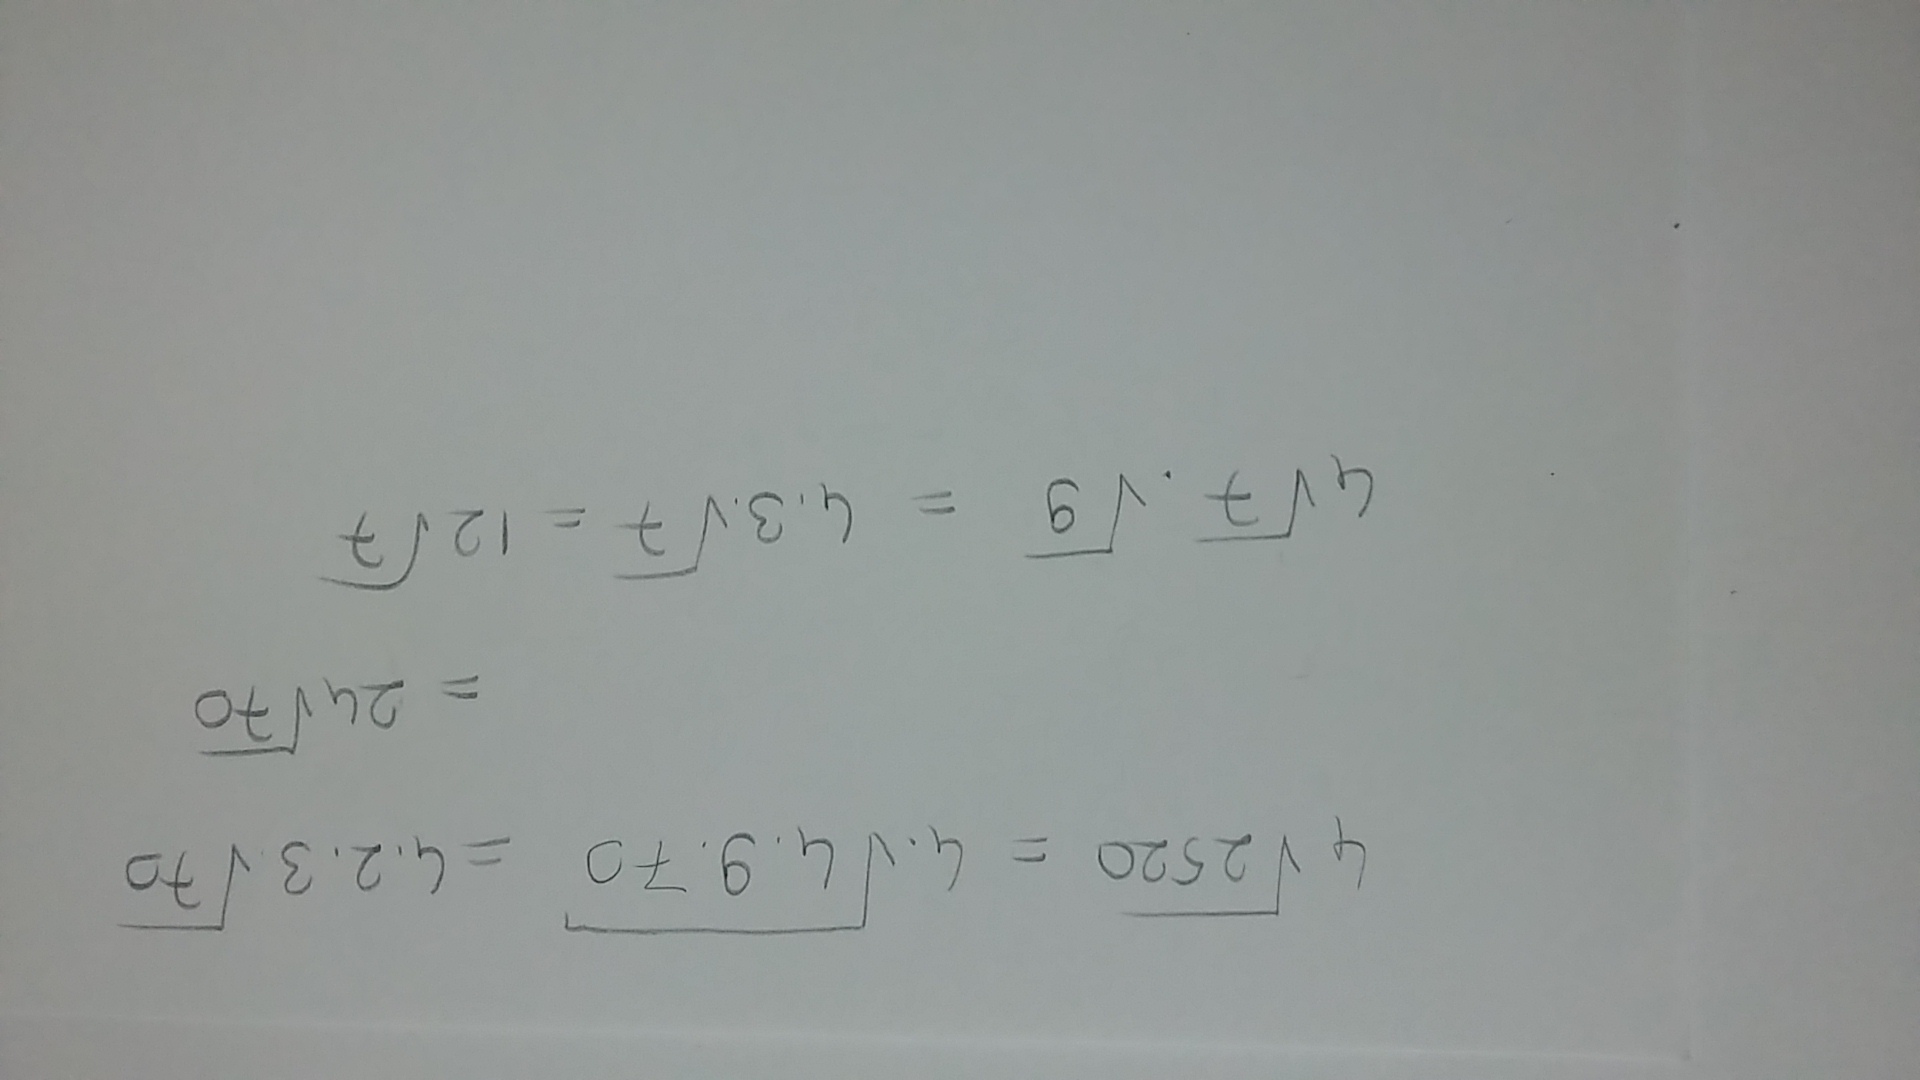 4√2520 = 4.√4.9.70 = 4.2.3.√70
= 24√70
4√7.√9 = 4.3.√7 = 12√7